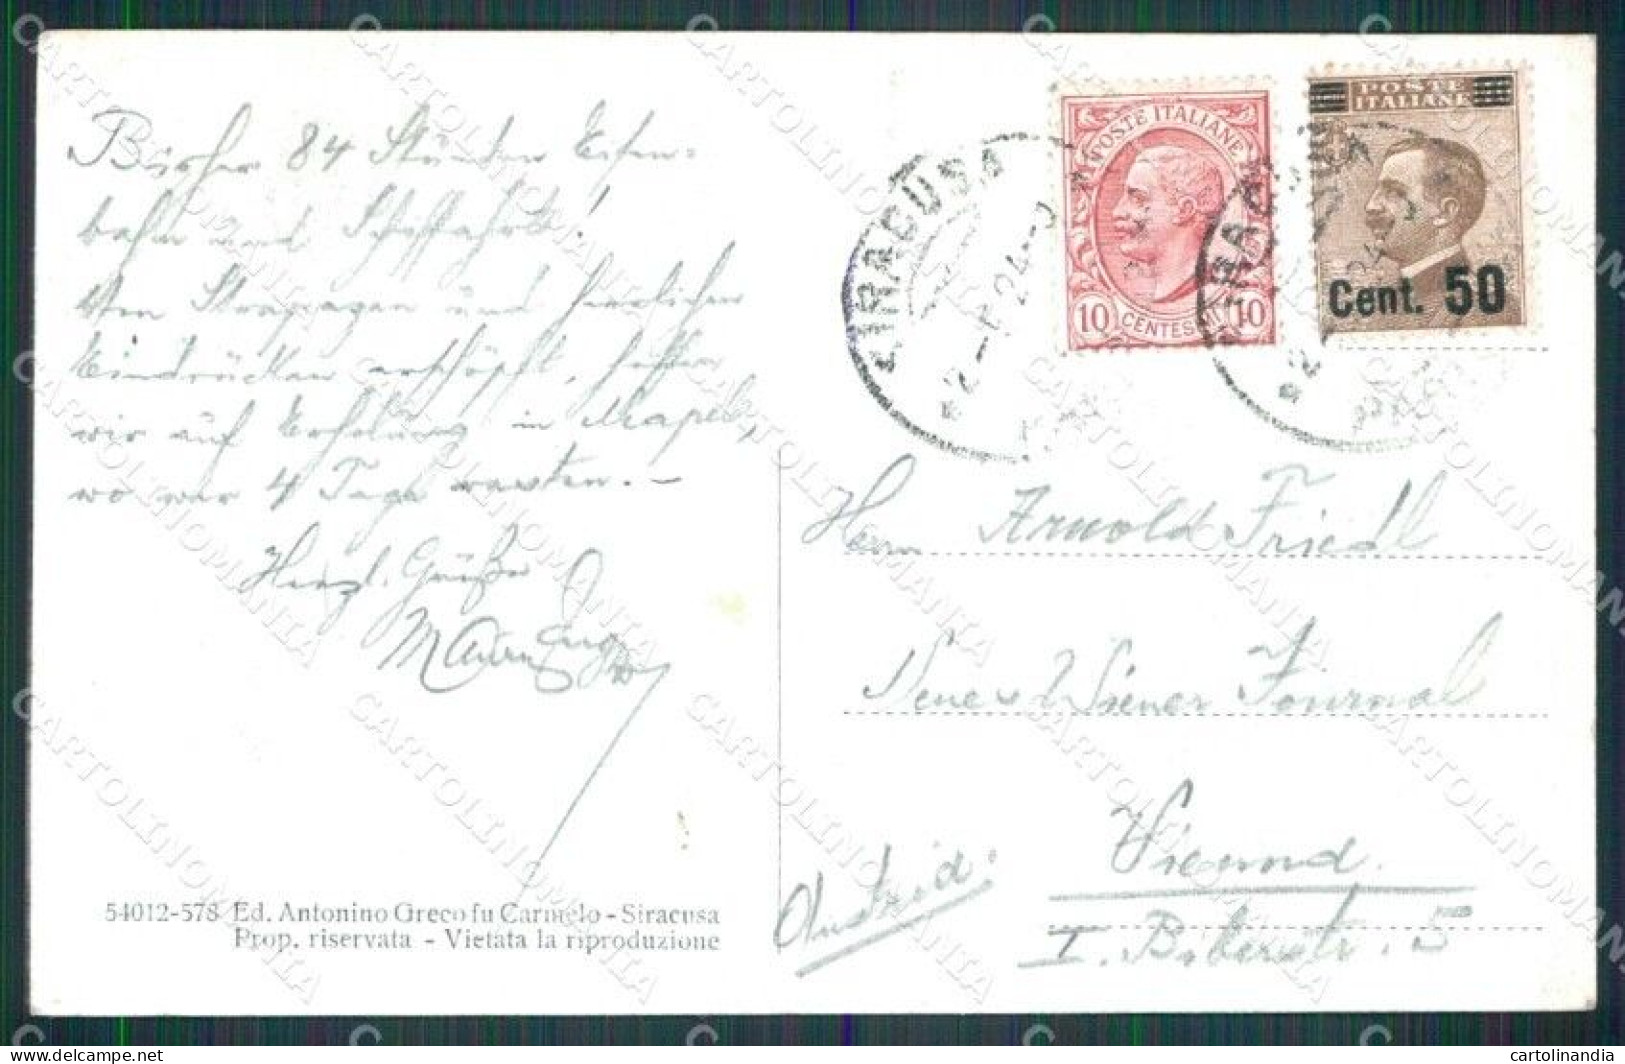 Bisher 84 Stunden Eisen=
bahn und Schiffahrt!
Von Strapazen und herrlichen
Eindrücken erschöpft, hoffen
wir auf Erholung in Neapel,
wo wir 4 Tage rasten. –
Herzl. Grüße
54012-578 Ed. Antonino Greco fu Carmelo - Siracusa
Prop. riservata - Vietata la riproduzione
SIRACUSA
POSTE ITALIANE
10 CENTESIMI 10
SIRACUSA
POSTE
ITALIANE
Cent. 50
Herrn Arnold Friedl
Neues Wiener Journal
Wien
I. Biberstr. 5
CARTOLINOMANIA
cartolinandia